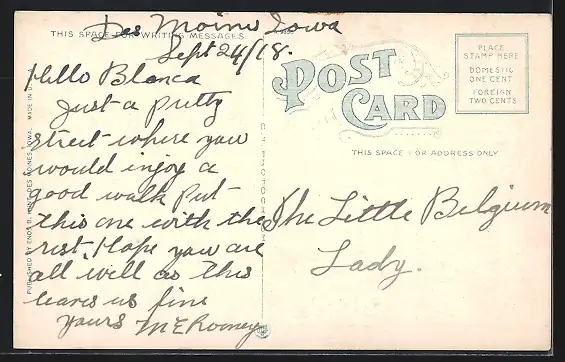 Des Moines Iowa
THIS SPACE FOR WRITING MESSAGES.
Sept 24/18.
Hello Blanca
Just a pretty
street where you
would injoy a
good walk Put
this one with the
rest. Hope you are
all well as this
leaves us fine
yours M E Romey
POST
CARD
THIS SPACE FOR ADDRESS ONLY
PLACE
STAMP HERE
DOMESTIC
ONE CENT
FOREIGN
TWO CENTS
The Little Belgium
Lady.
PUBLISHED BY ENOS B. HUNT, DES MOINES, IOWA. MADE IN U.